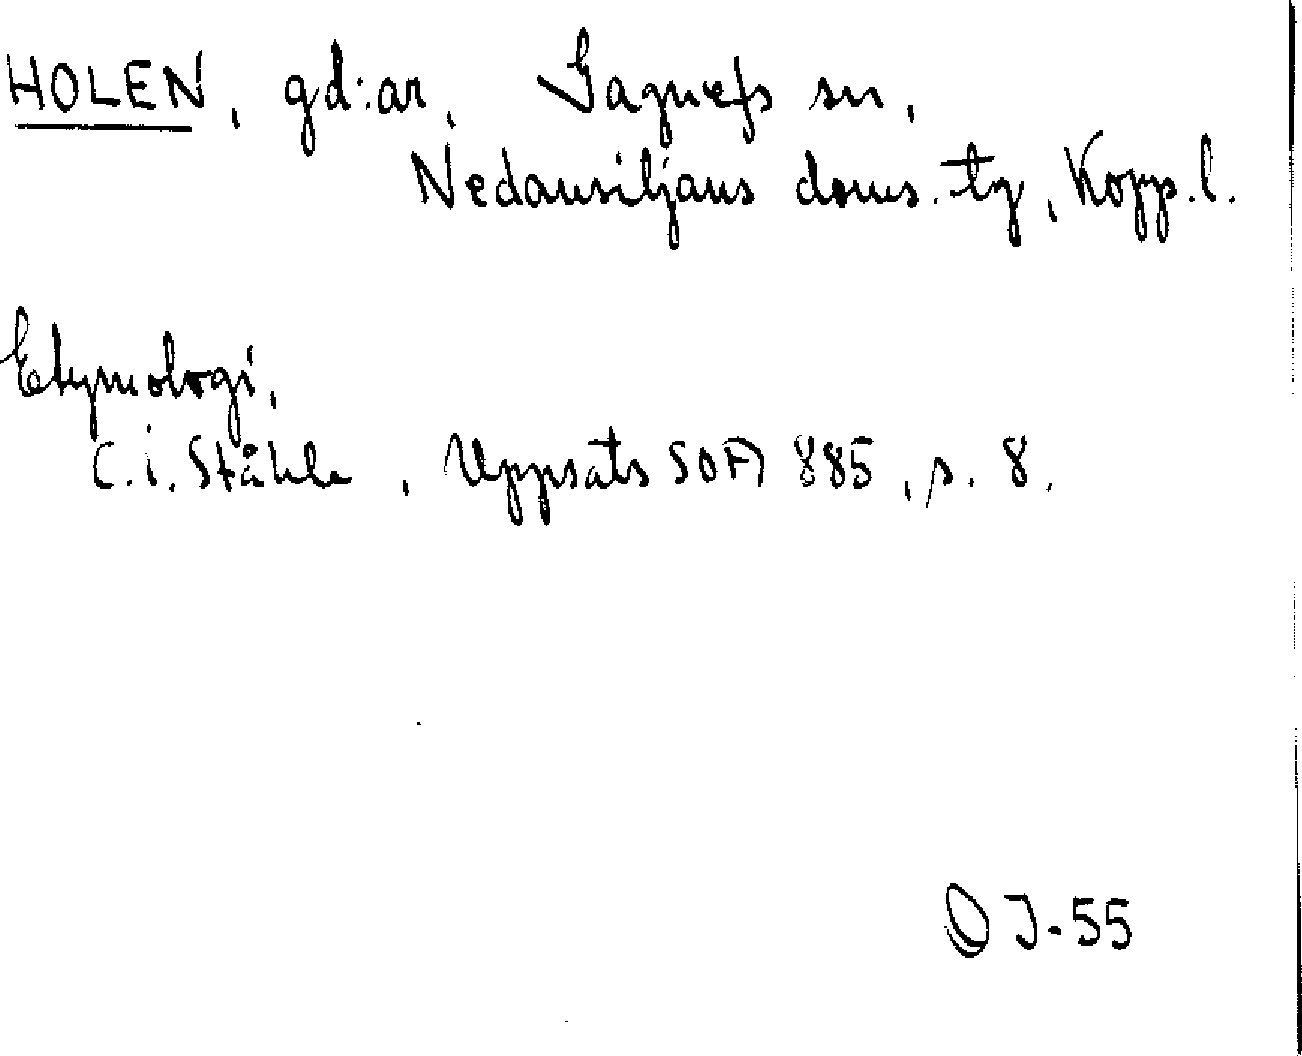 HOLEN, gd:ar, Gagnefs sn,
Nedansiljans doms. tg, Kopp. l.
Etymologi,
C. i. Ståhle, Uppsats SOFA 885, s. 8.
OJ-55